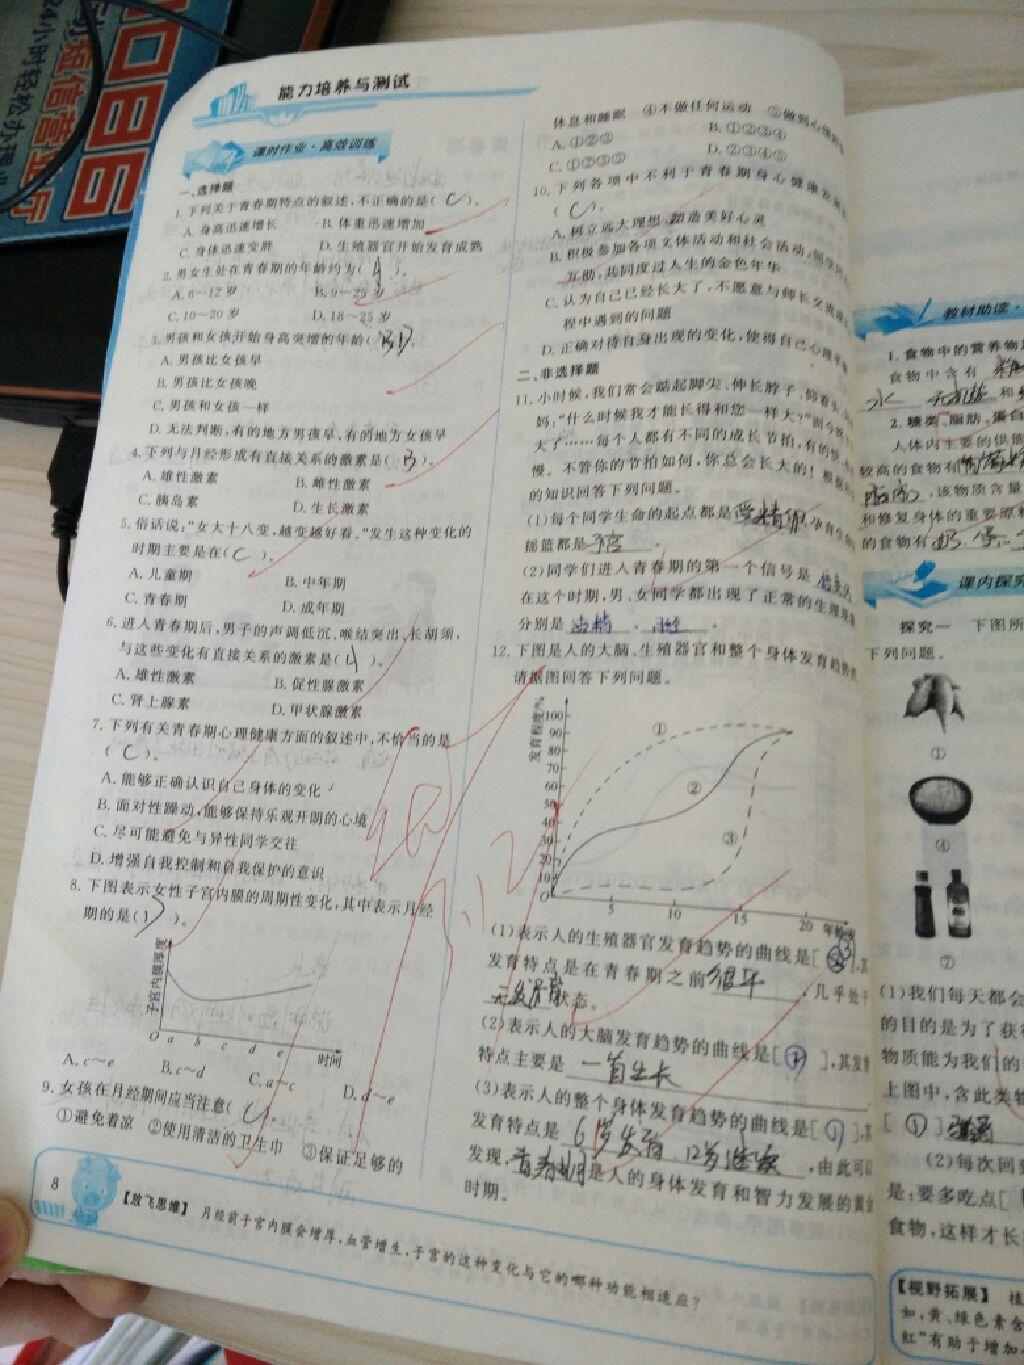 能力培养与测试
课时作业·高效训练
一、选择题
1.下列关于青春期特点的叙述,不正确的是( C )。
A.身高迅速增长 B.体重迅速增加
C.身体迅速变胖 D.生殖器官开始发育成熟
2.男女生处在青春期的年龄约为( )。
A.6～12岁 B.9～25岁
C.10～20岁 D.18～25岁
3.男孩和女孩开始身高突增的年龄(
A.男孩比女孩早
B.男孩比女孩晚
C.男孩和女孩一样
D.无法判断,有的地方男孩早,有的地方女孩早
4.下列与月经形成有直接关系的激素是( B )。
A.雄性激素 B.雌性激素
C.胰岛素 D.生长激素
5.俗话说:"女大十八变,越变越好看。"发生这种变化的
时期主要是在( C )。
A.儿童期 B.中年期
C.青春期 D.成年期
6.进入青春期后,男子的声调低沉、喉结突出、长胡须,
与这些变化有直接关系的激素是( )。
A.雄性激素 B.促性腺激素
C.肾上腺素 D.甲状腺激素
7.下列有关青春期心理健康方面的叙述中,不恰当的是
( C )。
A.能够正确认识自己身体的变化
B.面对性躁动,能够保持乐观开朗的心境
C.尽可能避免与异性同学交往
D.增强自我控制和自我保护的意识
8.下图表示女性子宫内膜的周期性变化,其中表示月经
期的是( )。
子宫内膜厚度
O a b c d e 时间
A.c～e B.c～d C.a～c D.d～e
9.女孩在月经期间应当注意( )。
①避免着凉 ②使用清洁的卫生巾 ③保证足够的
8
【放飞思维】 月经前子宫内膜会增厚,血管增生,子宫的这种变化与它的哪种功能相适应?
休息和睡眠 ④不做任何运动 ⑤做到心情
A.①②③ B.①②③④
C.①②③⑤ D.②③④⑤
10.下列各项中不利于青春期身心健康发
( C )。
A.树立远大理想,塑造美好心灵
B.积极参加各项文体活动和社会活动,同学
互助,共同度过人生的金色年华
C.认为自己已经长大了,不愿意与师长交流
程中遇到的问题
D.正确对待自身出现的变化,使得自己心
二、非选择题
11.小时候,我们常会踮起脚尖、伸长脖子、仰着
妈:"什么时候我才能长得和您一样大?"而今
大了……每个人都有不同的成长节拍,有的快
慢。不管你的节拍如何,你总会长大的!根据
的知识回答下列问题。
(1)每个同学生命的起点都是受精卵,孕育生命
摇篮都是 子宫 。
(2)同学们进入青春期的第一个信号是
在这个时期,男、女同学都出现了正常的生理现象
分别是 遗精 、 月经 。
12.下图是人的大脑、生殖器官和整个身体发育趋势
请据图回答下列问题。
发育程度/%
100
90
80
70
60
50
40
30
20
10
0
① ② ③
5 10 15 20 年龄/岁
(1)表示人的生殖器官发育趋势的曲线是[ ③ ],其
发育特点是在青春期之前 很平 ,几乎处于
状态。
(2)表示人的大脑发育趋势的曲线是[ ],其发育
特点主要是 一直生长
(3)表示人的整个身体发育趋势的曲线是[ ① ],其
发育特点是 6岁发育,12岁 ,由此可以
发现,青春期是人的身体发育和智力发展的黄金
时期。
教材助读
1.食物中的营养物
食物中含有
水 无机盐 和
2.糖类、脂肪、蛋白
人体内主要的供能
较高的食物有
,该物质含量
和修复身体的重要原料
的食物有 奶
课内探究
探究一 下图所
下列问题。
①
④
⑦
(1)我们每天都会
的目的是为了获得
物质能为我们的
上图中,含此类物
[ ① ]
(2)每次回
是:要多吃点[
食物,这样才长
【视野拓展】 植
如,黄、绿色素含
红"有助于增加
24小时轻松办理业
动短信营业厅
10086